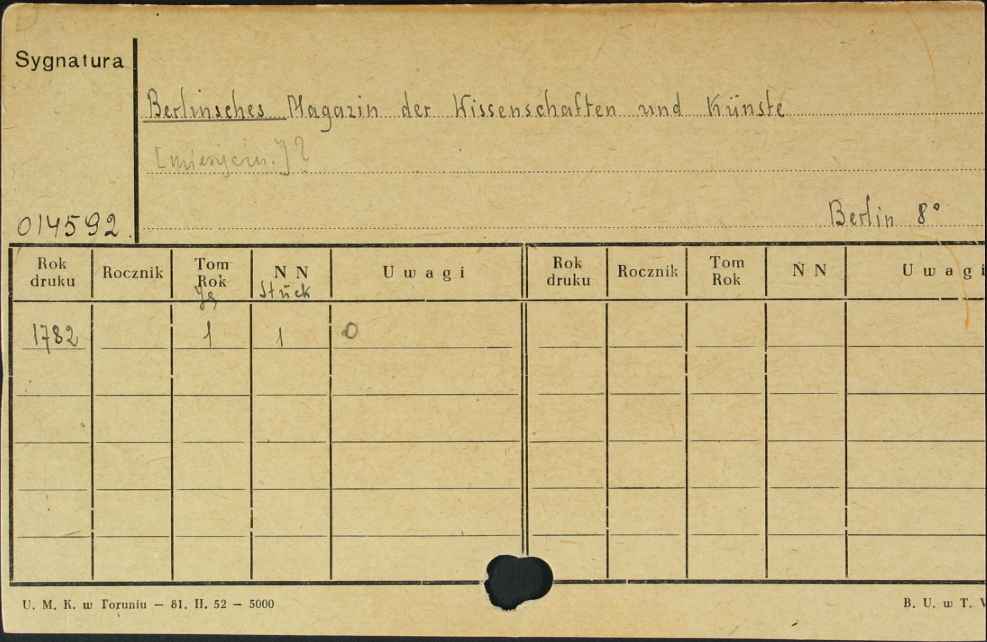 Sygnatura
Berlinsches Magazin der Wissenschaften und Künste
[miesięczn.]?
Berlin 8°
014592
Rok druku Rocznik Tom Rok N N Uwagi Rok druku Rocznik Tom Rok N N Uwagi
Jg Stück
1782 1 1 0
U. M. K. w Toruniu — 81. II. 52 — 5000
B. U. w T. V